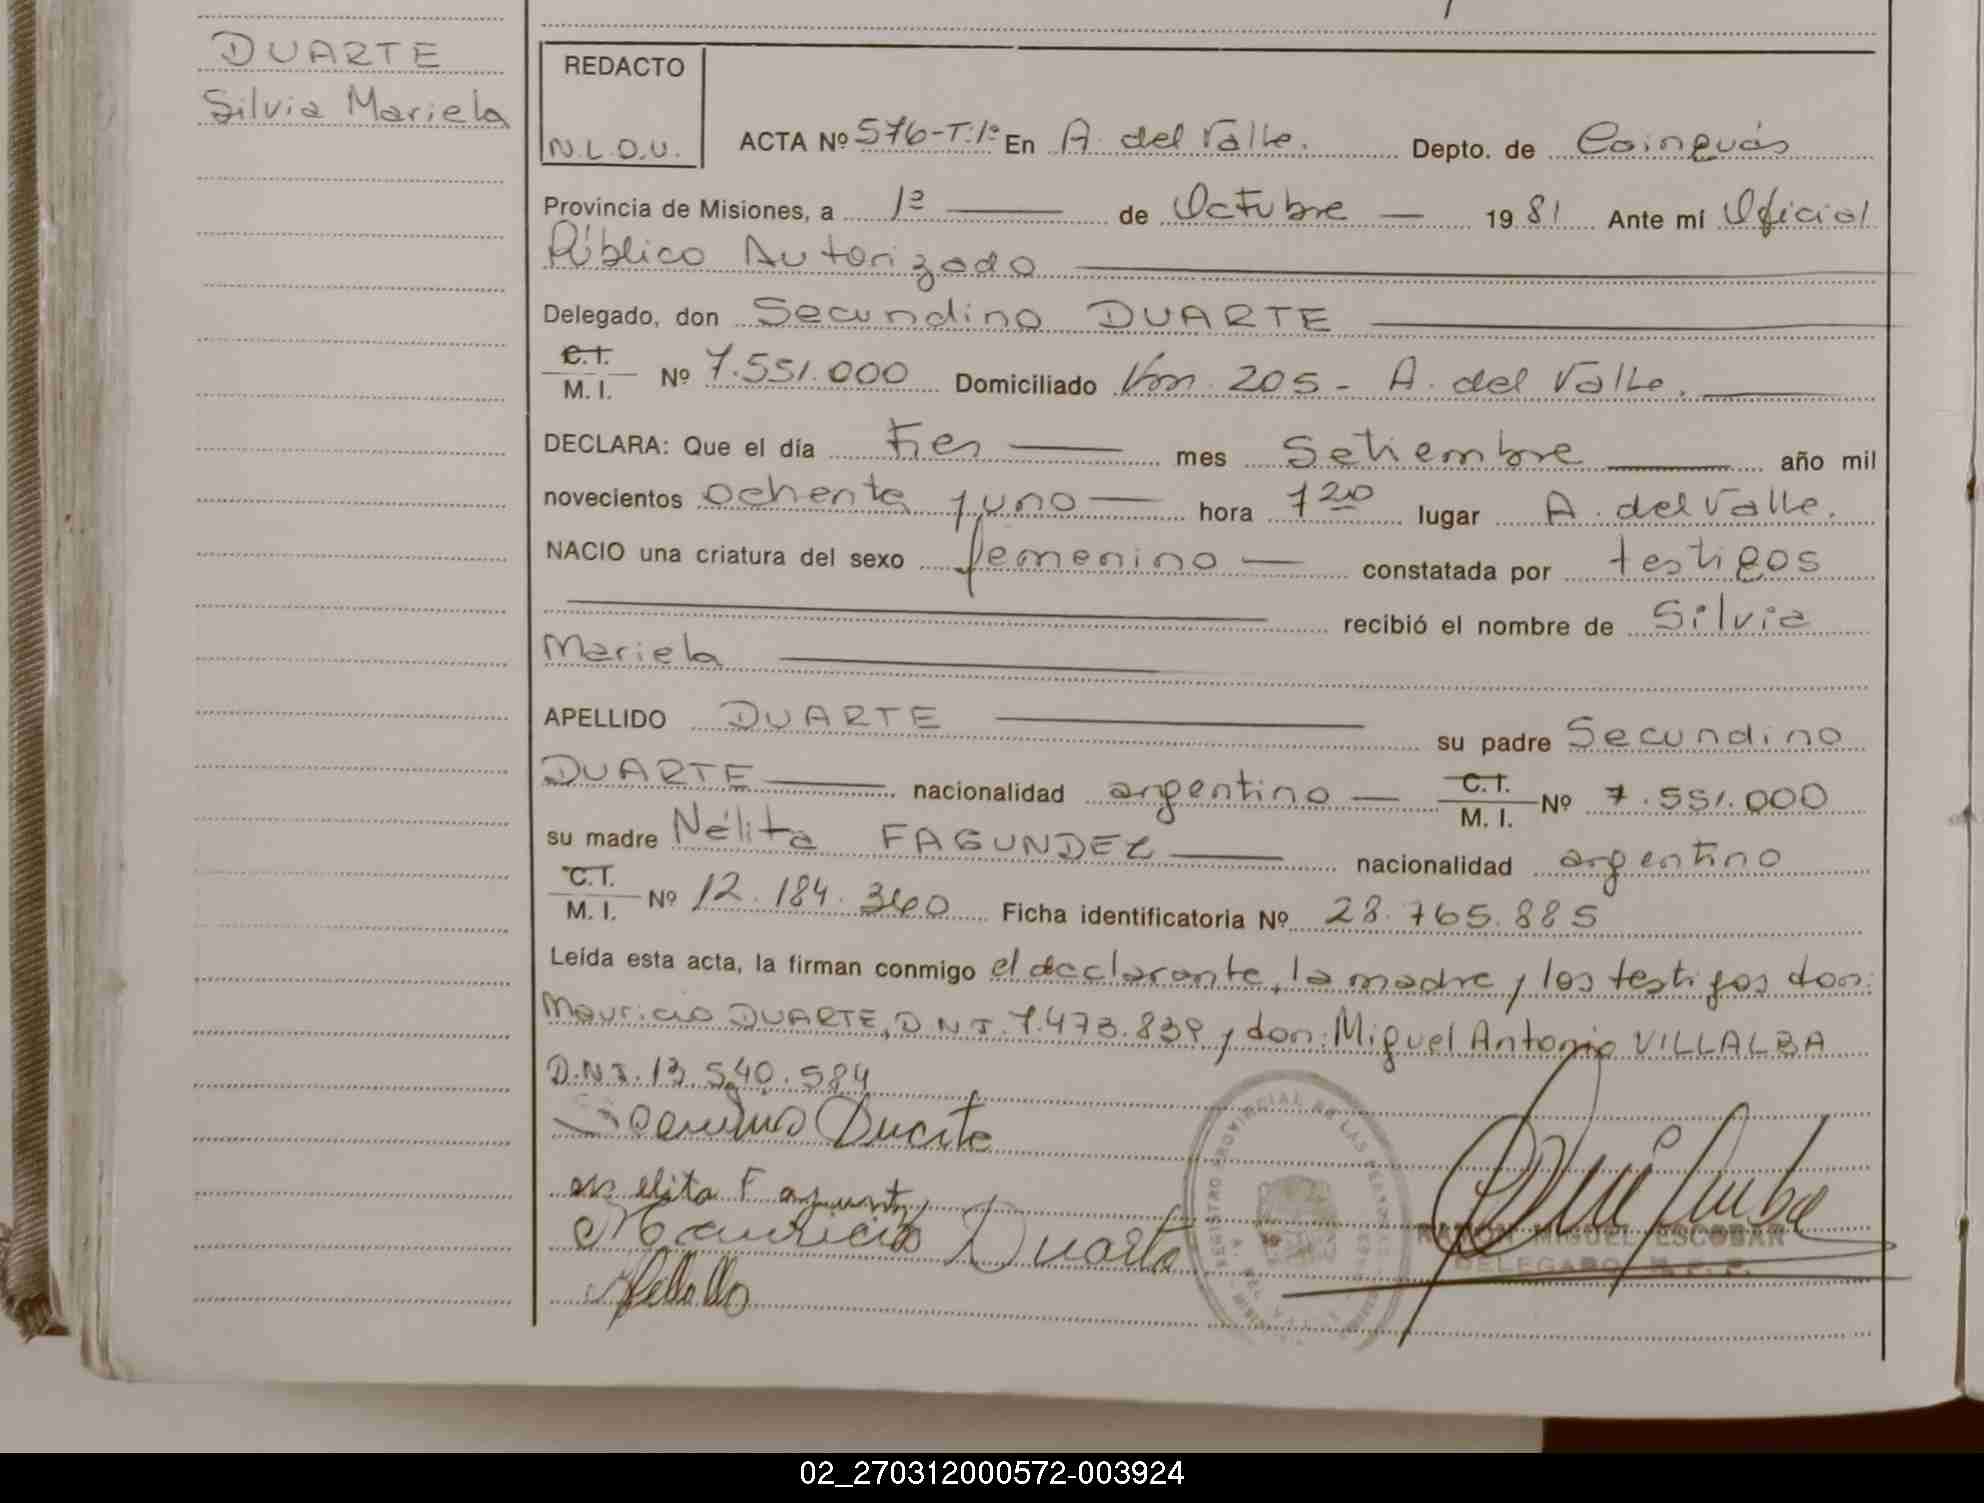 DUARTE
Silvia Mariela
REDACTO
N.L.D.U.
ACTA Nº 576-T:1º En A. del Valle. Depto. de Cainguás
Provincia de Misiones, a 1º de Octubre 1981 Ante mí Oficial
Público Autorizado
Delegado, don Secundino DUARTE
C.I.
M. I. Nº 7.551.000 Domiciliado Km. 205 - A. del Valle.
DECLARA: Que el día tres mes Setiembre año mil
novecientos ochenta y uno hora 7 20 lugar A. del Valle.
NACIO una criatura del sexo femenino constatada por testigos
recibió el nombre de Silvia
Mariela
APELLIDO DUARTE su padre Secundino
DUARTE nacionalidad argentino C.I. M. I. Nº 7.551.000
su madre Nélita FAGUNDEZ nacionalidad argentino
C.I.
M. I. Nº 12.184.340 Ficha identificatoria Nº 28.765.885
Leída esta acta, la firman conmigo el declarante, la madre y los testigos don:
Mauricio DUARTE, D.N.I. 7.473.839 y don: Miguel Antonio VILLALBA
D.N.I. 13.540.584
Secundino Duarte
Nelita Fagundez
Mauricio Duarte
REGISTRO PROVINCIAL DE LAS PERSONAS
RAMON MIGUEL ESCOBAR
DELEGADO R. P. P.
02_270312000572-003924